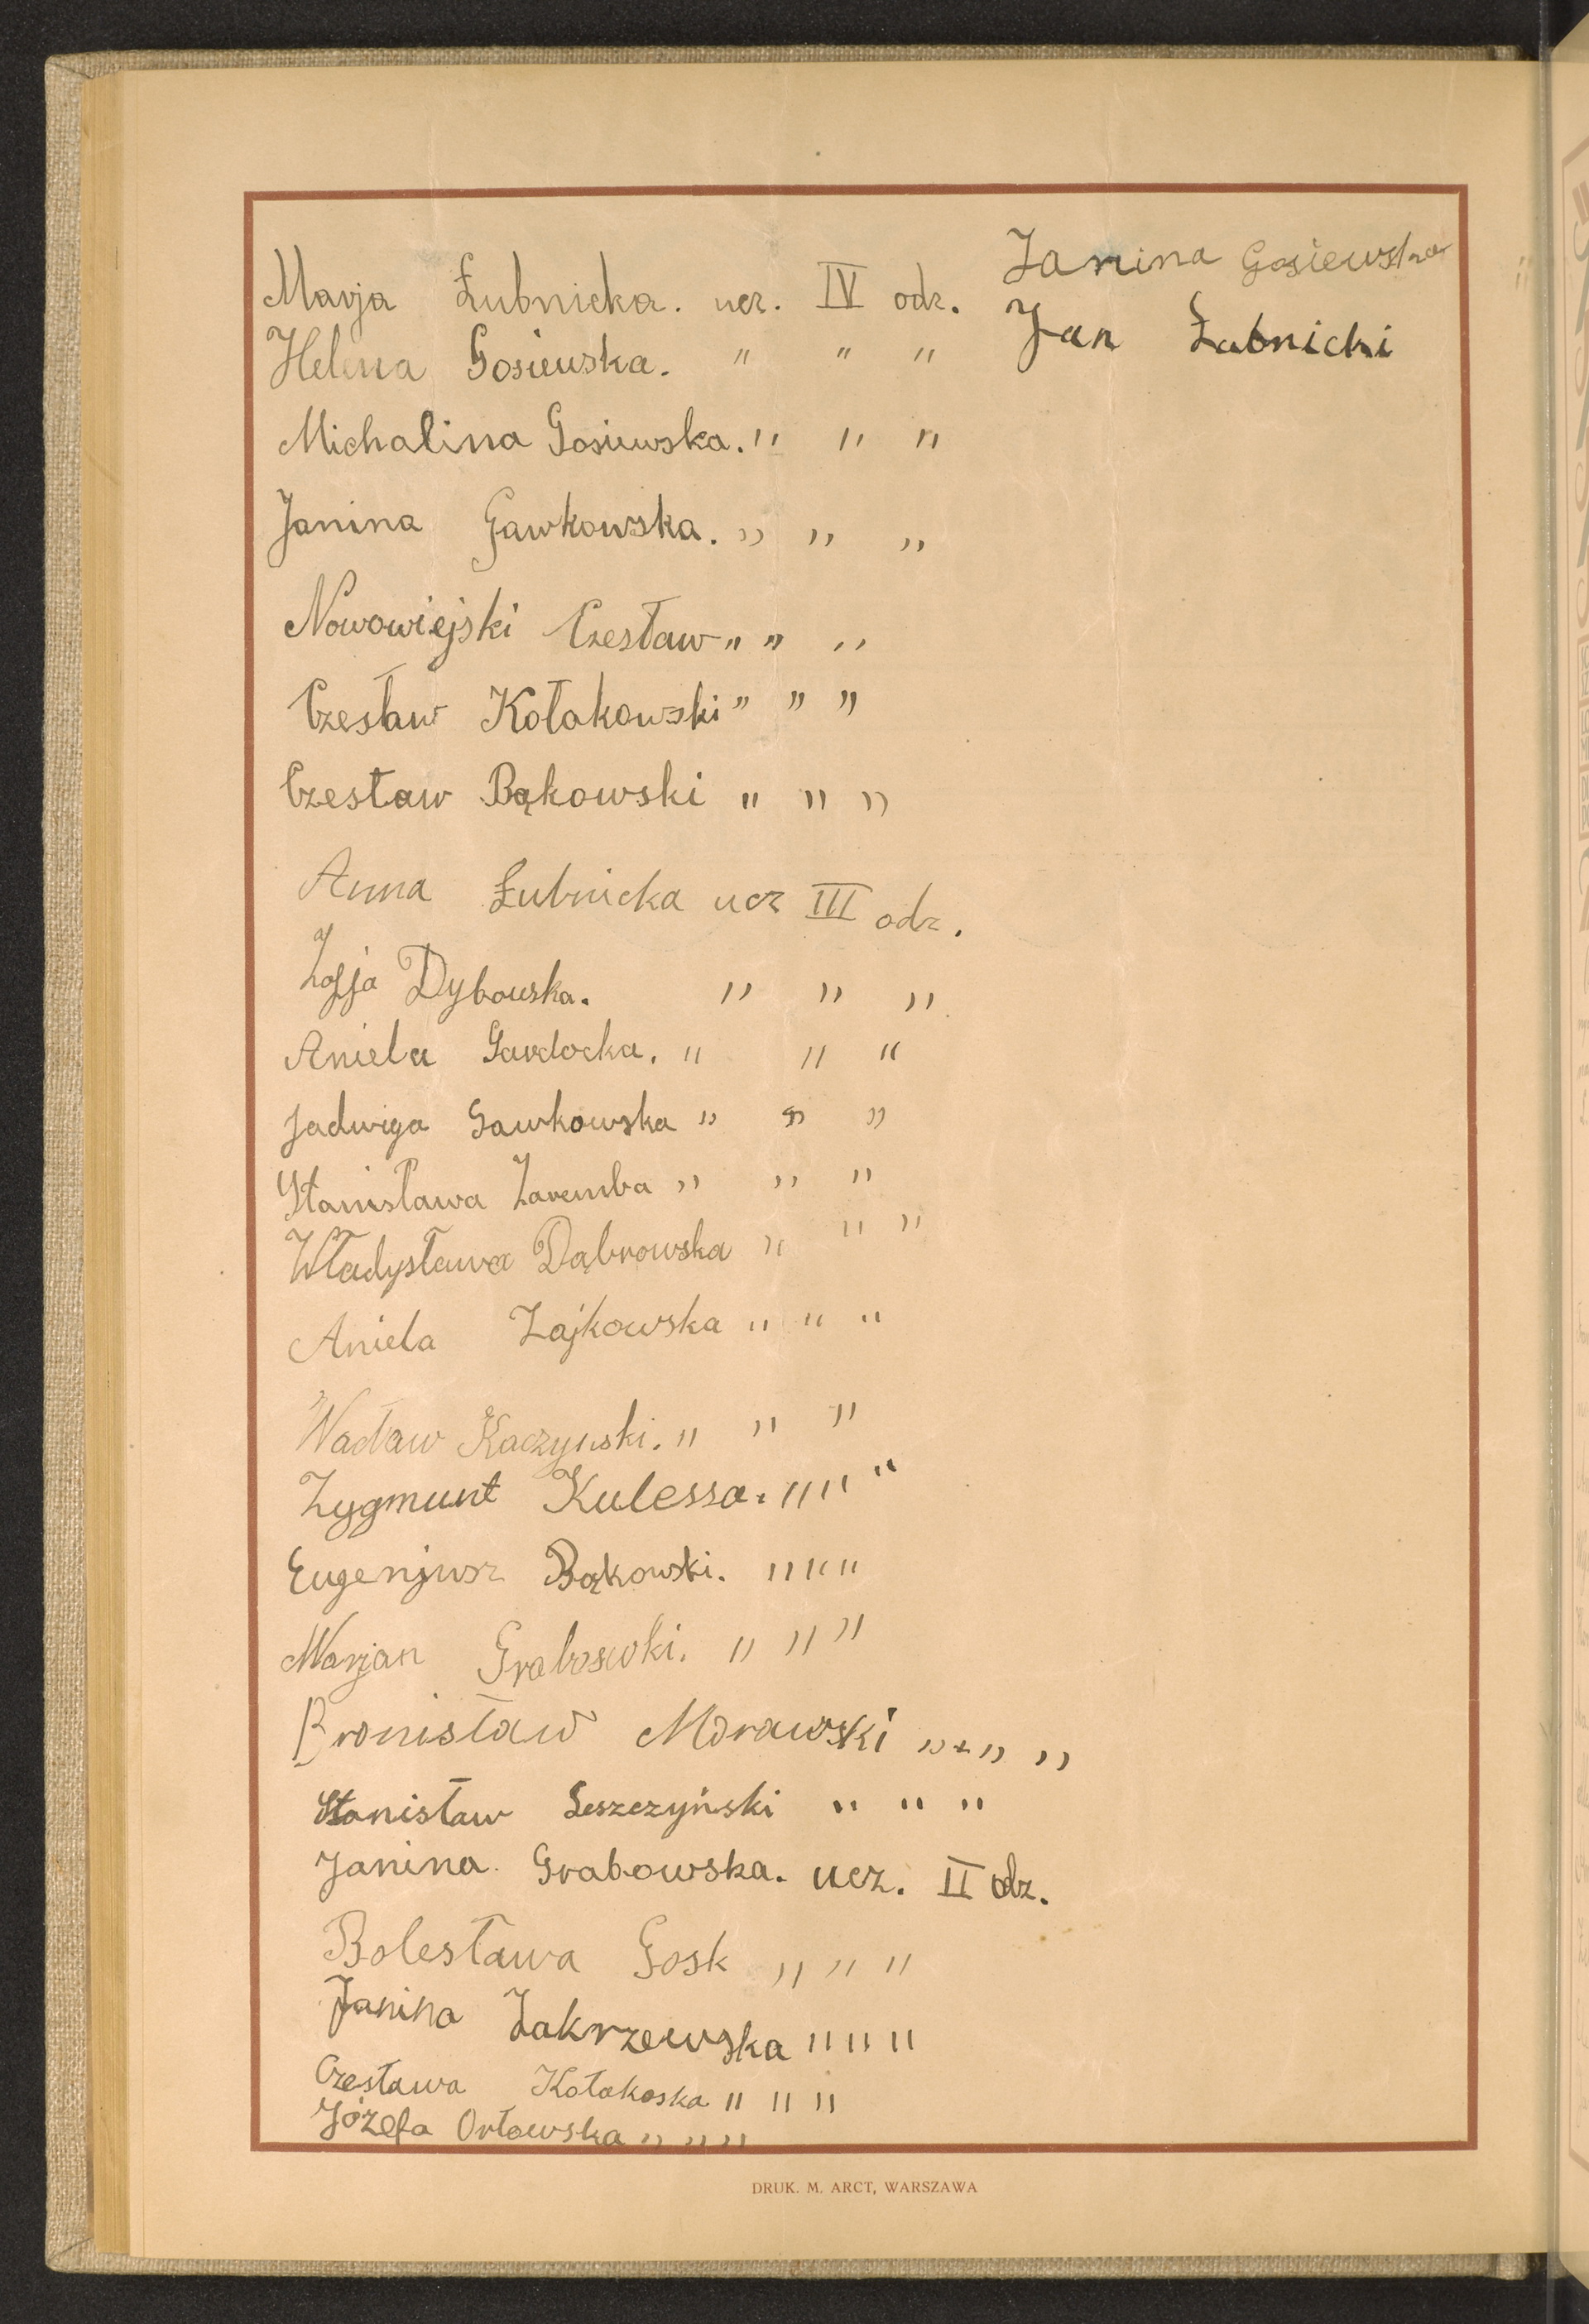 Marja Łubnicka. ucz. IV odz.
Helena Gosiewska. " " "
Michalina Gosiewska. " " "
Janina Gawkowska. " " "
Nowowiejski Czesław " " "
Czesław Kołakowski " " "
Czesław Bąkowski " " "
Anna Łubnicka ucz III odz.
Zofja Dybowska. " " "
Aniela Gardocka. " " "
Jadwiga Gawkowska " " "
Stanisława Zaremba " " "
Władysława Dąbrowska " " "
Aniela Zajkowska " " "
Wacław Kaczynski. " " "
Zygmunt Kulessa. " " "
Eugenjusz Bąkowski. " " "
Marjan Grabowski. " " "
Bronisław Morawski " " "
Stanisław Leszczyński " " "
Janina Grabowska. ucz. II odz.
Bolesława Gosk " " "
Janina Zakrzewska " " "
Czesława Kołakoska " " "
Józefa Orłowska " " "
Janina Gosiewska
Jan Łabnicki
DRUK. M. ARCT, WARSZAWA